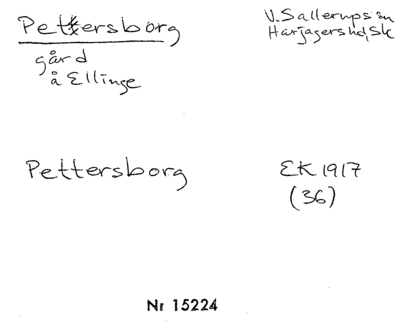 Pettersborg
V. Sallerups sn
Harjagers hd, Sk
gård
å Ellinge
Pettersborg
EK 1917
(36)
Nr 15224